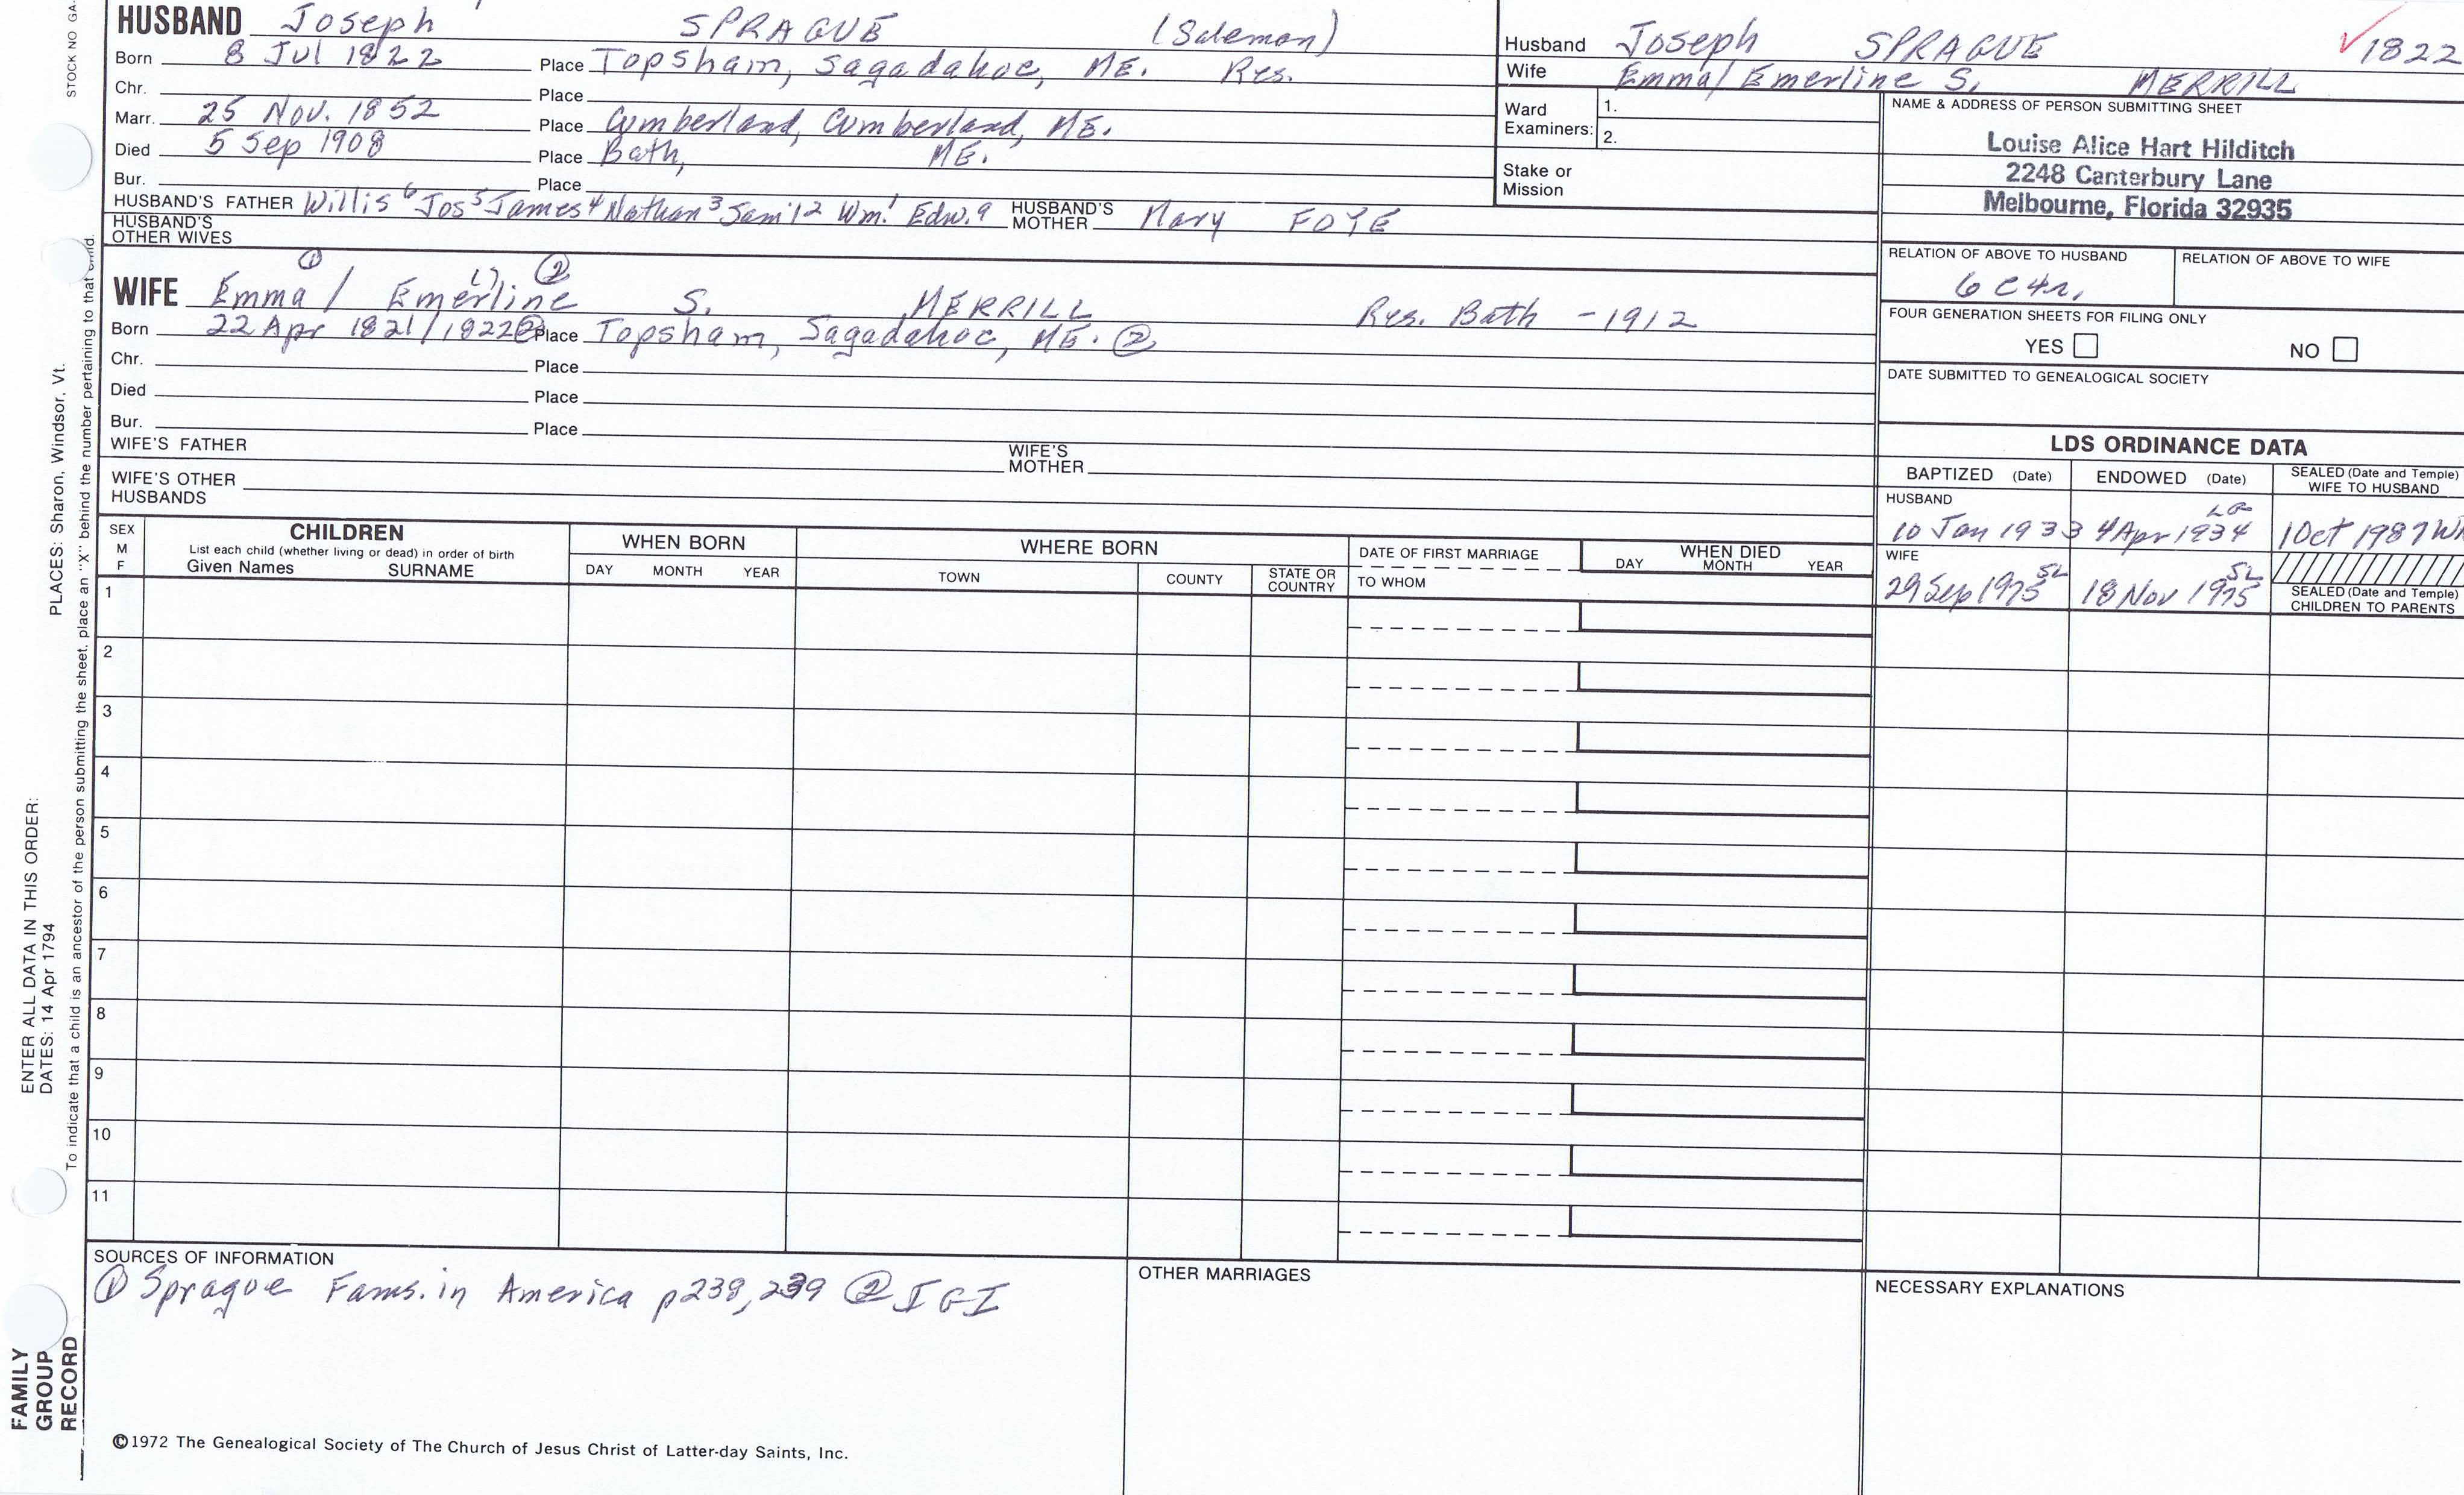 STOCK NO GA-
HUSBAND Joseph SPRAGUE (Saleman)
Born 8 Jul 1822 Place Topsham, Sagadahoc, ME. Res.
Chr. Place
Marr. 25 Nov. 1852 Place Cumberland, Cumberland, ME.
Died 5 Sep 1908 Place Bath, ME.
Bur. Place
HUSBAND'S FATHER Willis 6 Jos 5 James 4 Nathan 3 Sam'l 2 Wm. 1 Edw. 9 HUSBAND'S MOTHER Mary FOYE
HUSBAND'S OTHER WIVES
① L) ②
WIFE Emma / Emerline S. MERRILL Res. Bath - 1912
Born 22 Apr 1821/1822② Place Topsham, Sagadahoc, ME. ②
Chr. Place
Died Place
Bur. Place
WIFE'S FATHER WIFE'S MOTHER
WIFE'S OTHER HUSBANDS
Husband Joseph SPRAGUE ✓1822
Wife Emma/Emerline S. MERRILL
Ward Examiners: 1.
2.
Stake or Mission
NAME & ADDRESS OF PERSON SUBMITTING SHEET
Louise Alice Hart Hilditch
2248 Canterbury Lane
Melbourne, Florida 32935
RELATION OF ABOVE TO HUSBAND RELATION OF ABOVE TO WIFE
6C4r.
FOUR GENERATION SHEETS FOR FILING ONLY
YES NO
DATE SUBMITTED TO GENEALOGICAL SOCIETY
LDS ORDINANCE DATA
BAPTIZED (Date) ENDOWED (Date) SEALED (Date and Temple) WIFE TO HUSBAND
HUSBAND
10 Jan 1933 4 Apr 1934 1 Oct 1987
WIFE
29 Sep 1975 SL 18 Nov 1975 SL
SEALED (Date and Temple) CHILDREN TO PARENTS
SEX M F
CHILDREN
List each child (whether living or dead) in order of birth
Given Names SURNAME
WHEN BORN
DAY MONTH YEAR
WHERE BORN
TOWN COUNTY STATE OR COUNTRY
DATE OF FIRST MARRIAGE
TO WHOM
WHEN DIED
DAY MONTH YEAR
1
2
3
4
5
6
7
8
9
10
11
SOURCES OF INFORMATION
① Sprague Fams. in America p238, 239 ② IGI
OTHER MARRIAGES
NECESSARY EXPLANATIONS
©1972 The Genealogical Society of The Church of Jesus Christ of Latter-day Saints, Inc.
FAMILY GROUP RECORD
ENTER ALL DATA IN THIS ORDER:
DATES: 14 Apr 1794 PLACES: Sharon, Windsor, Vt.
To indicate that a child is an ancestor of the person submitting the sheet, place an "X" behind the number pertaining to that child.